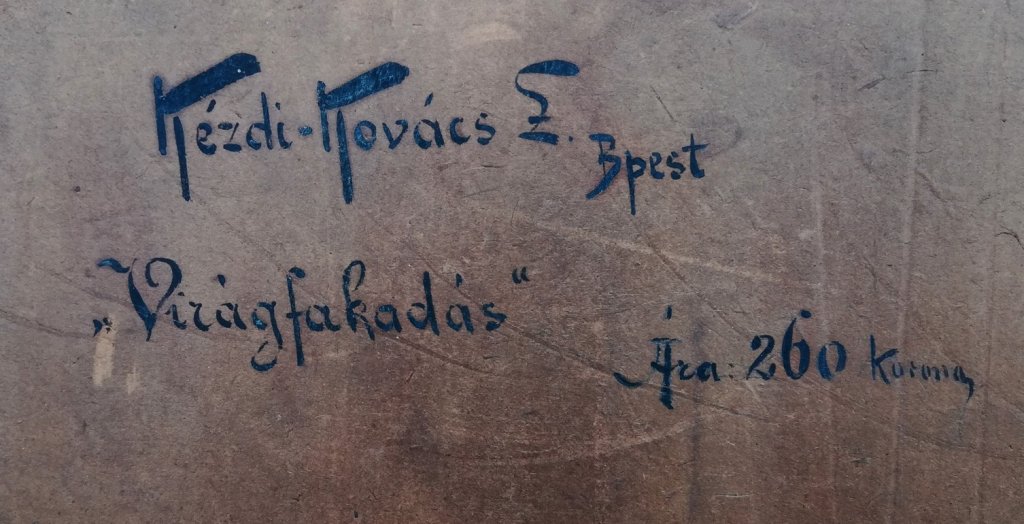 Kézdi-Kovács E. Bpest
„Virágfakadás“
Ára: 260 Korona